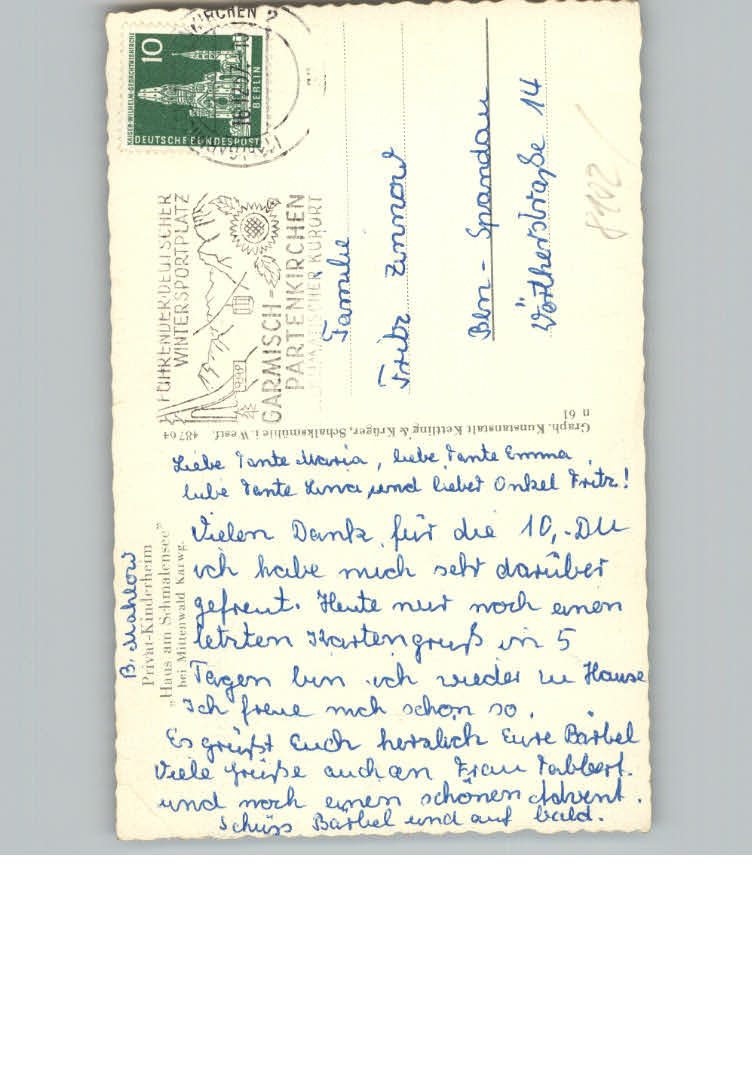 KIRCHEN 2
10
KAISER-WILHELM-GEDÄCHTNISKIRCHE
BERLIN
DEUTSCHE BUNDESPOST
FÜHRENDER DEUTSCHER
WINTERSPORTPLATZ
GARMISCH-
PARTENKIRCHEN
HEILKLIMATISCHER KURORT
Familie
Fritz Zinnow
Bln - Spandau
Wörtherstraße 14
8102
Graph. Kunstanstalt Kettling & Krüger, Schalksmühle i. Westf. 48764
n 61
B. Mahlow
Privat-Kinderheim
„Haus am Schmalensee"
bei Mittenwald Karwg.
Liebe Tante Maria, liebe Tante Emma
liebe Tante Lina, und lieber Onkel Fritz!
Vielen Dank für die 10,-DM
ich habe mich sehr darüber
gefreut. Heute nur noch einen
letzten Kartengruß in 5
Tagen bin ich wieder zu Hause
Ich freue mich schon so.
Es grüßt Euch herzlich Eure Bärbel
Viele Grüße auch an Frau Tabbert.
und noch einen schönen Advent.
Schüss Bärbel und auf bald.